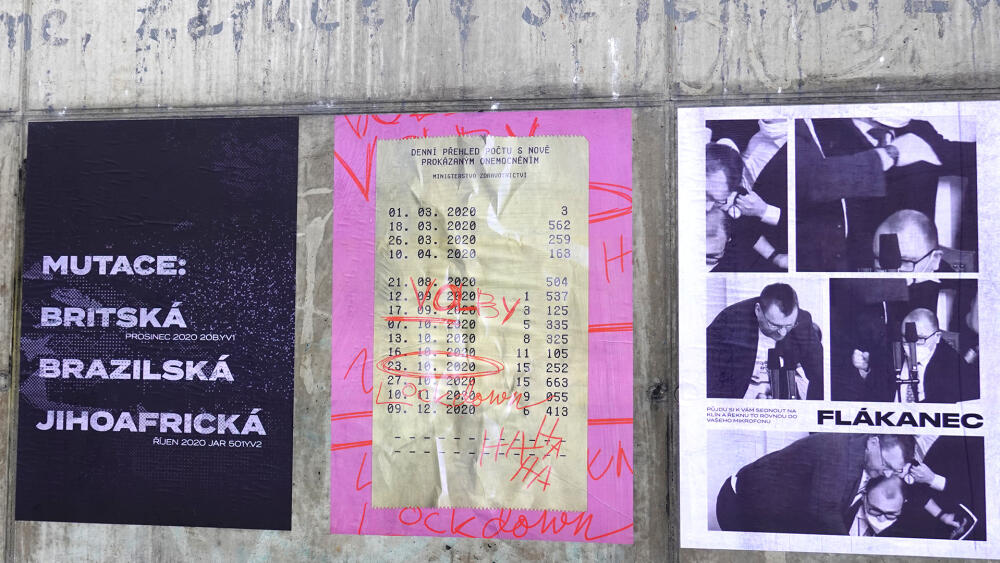 MUTACE:
BRITSKÁ
PROSINEC 2020 20BYV1
BRAZILSKÁ
JIHOAFRICKÁ
ŘÍJEN 2020 JAR 501YV2
DENNÍ PŘEHLED POČTU S NOVĚ
PROKÁZANÝM ONEMOCNĚNÍM
MINISTERSTVO ZDRAVOTNICTVÍ
01. 03. 2020 3
18. 03. 2020 562
26. 03. 2020 259
10. 04. 2020 168
21. 08. 2020 504
VOLBY
12. 09. 2020 1 537
17. 09. 2020 3 125
07. 10. 2020 5 335
13. 10. 2020 8 325
16. 10. 2020 11 105
23. 10. 2020 15 252
27. 10. 2020 15 663
Lockdown
10. 11. 2020 9 055
09. 12. 2020 6 413
HAHA
HA
Lockdown
PŮJDU SI K VÁM SEDNOUT NA
KLÍN A ŘEKNU TO ROVNOU DO
VAŠEHO MIKROFONU
FLÁKANEC